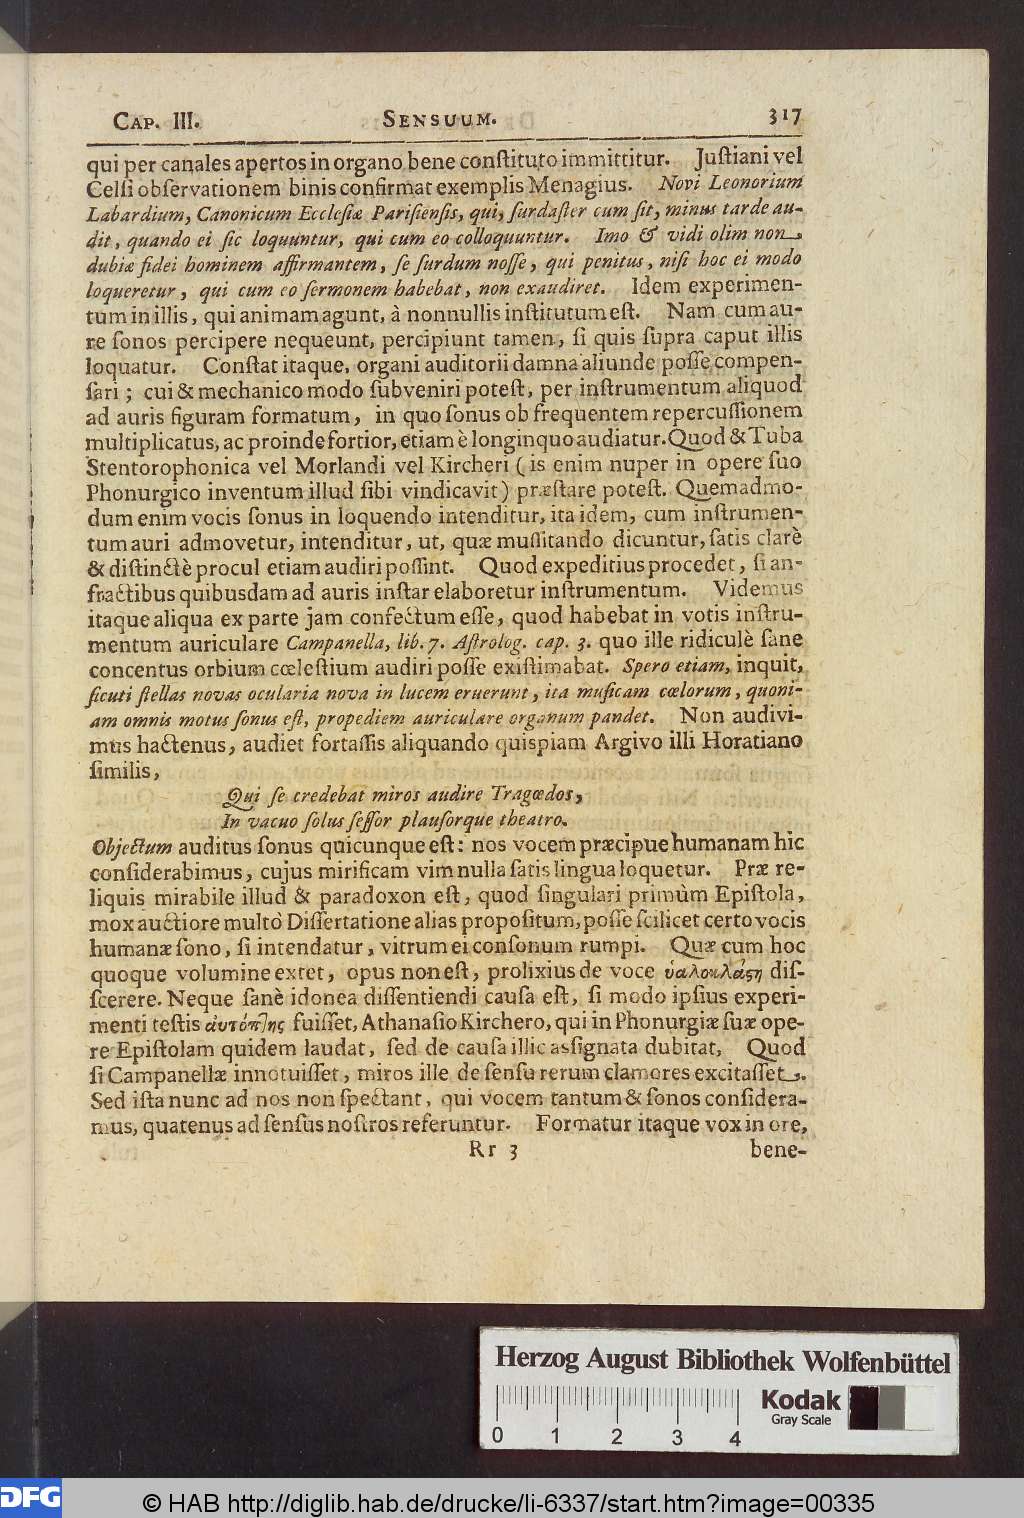 CAP. III. SENSUUM. 317
qui per canales apertos in organo bene constituto immittitur. Justiani vel
Celsi observationem binis confirmat exemplis Menagius. Novi Leonorium
Labardium, Canonicum Ecclesiæ Parisiensis, qui, surdaster cum sit, minus tarde au-
dit, quando ei sic loquuntur, qui cum eo colloquuntur. Imo & vidi olim non
dubiæ fidei hominem affirmantem, se surdum nosse, qui penitus, nisi hoc ei modo
loqueretur, qui cum eo sermonem habebat, non exaudiret. Idem experimen-
tum in illis, qui animam agunt, à nonnullis institutum est. Nam cum au-
re sonos percipere nequeunt, percipiunt tamen, si quis supra caput illis
loquatur. Constat itaque, organi auditorii damna aliunde posse compen-
sari; cui & mechanico modo subveniri potest, per instrumentum aliquod
ad auris figuram formatum, in quo sonus ob frequentem repercussionem
multiplicatus, ac proinde fortior, etiam è longinquo audiatur. Quod & Tuba
Stentorophonica vel Morlandi vel Kircheri (is enim nuper in opere suo
Phonurgico inventum illud sibi vindicavit) præstare potest. Quemadmo-
dum enim vocis sonus in loquendo intenditur, ita idem, cum instrumen-
tum auri admovetur, intenditur, ut, quæ mussitando dicuntur, satis clarè
& distinctè procul etiam audiri possint. Quod expeditius procedet, si an-
fractibus quibusdam ad auris instar elaboretur instrumentum. Videmus
itaque aliqua ex parte jam confectum esse, quod habebat in votis instru-
mentum auriculare Campanella, lib. 7. Astrolog. cap. 3. quo ille ridiculè sane
concentus orbium cœlestium audiri posse existimabat. Spero etiam, inquit,
sicuti stellas novas ocularia nova in lucem eruerunt, ita musicam cœlorum, quoni-
am omnis motus sonus est, propediem auriculare organum pandet. Non audivi-
mus hactenus, audiet fortassis aliquando quispiam Argivo illi Horatiano
similis,
Qui se credebat miros audire Tragœdos,
In vacuo solus sessor plausorque theatro.
Objectum auditus sonus quicunque est: nos vocem præcipue humanam hic
considerabimus, cujus mirificam vim nulla satis lingua loquetur. Præ re-
liquis mirabile illud & paradoxon est, quod singulari primùm Epistola,
mox auctiore multò Dissertatione alias propositum, posse scilicet certo vocis
humanæ sono, si intendatur, vitrum ei consonum rumpi. Quæ cum hoc
quoque volumine extet, opus non est, prolixius de voce ὑαλοκλάςῃ dis-
serere. Neque sanè idonea dissentiendi causa est, si modo ipsius experi-
menti testis αὐτόπτης fuisset, Athanasio Kirchero, qui in Phonurgiæ suæ ope-
re Epistolam quidem laudat, sed de causa illic assignata dubitat, Quod
si Campanellæ innotuisset, miros ille de sensu rerum clamores excitasset.
Sed ista nunc ad nos non spectant, qui vocem tantum & sonos considera-
mus, quatenus ad sensus nostros referuntur. Formatur itaque vox in ore,
Rr 3 bene-
Herzog August Bibliothek Wolfenbüttel
Kodak
Gray Scale
0 1 2 3 4
DFG © HAB http://diglib.hab.de/drucke/li-6337/start.htm?image=00335